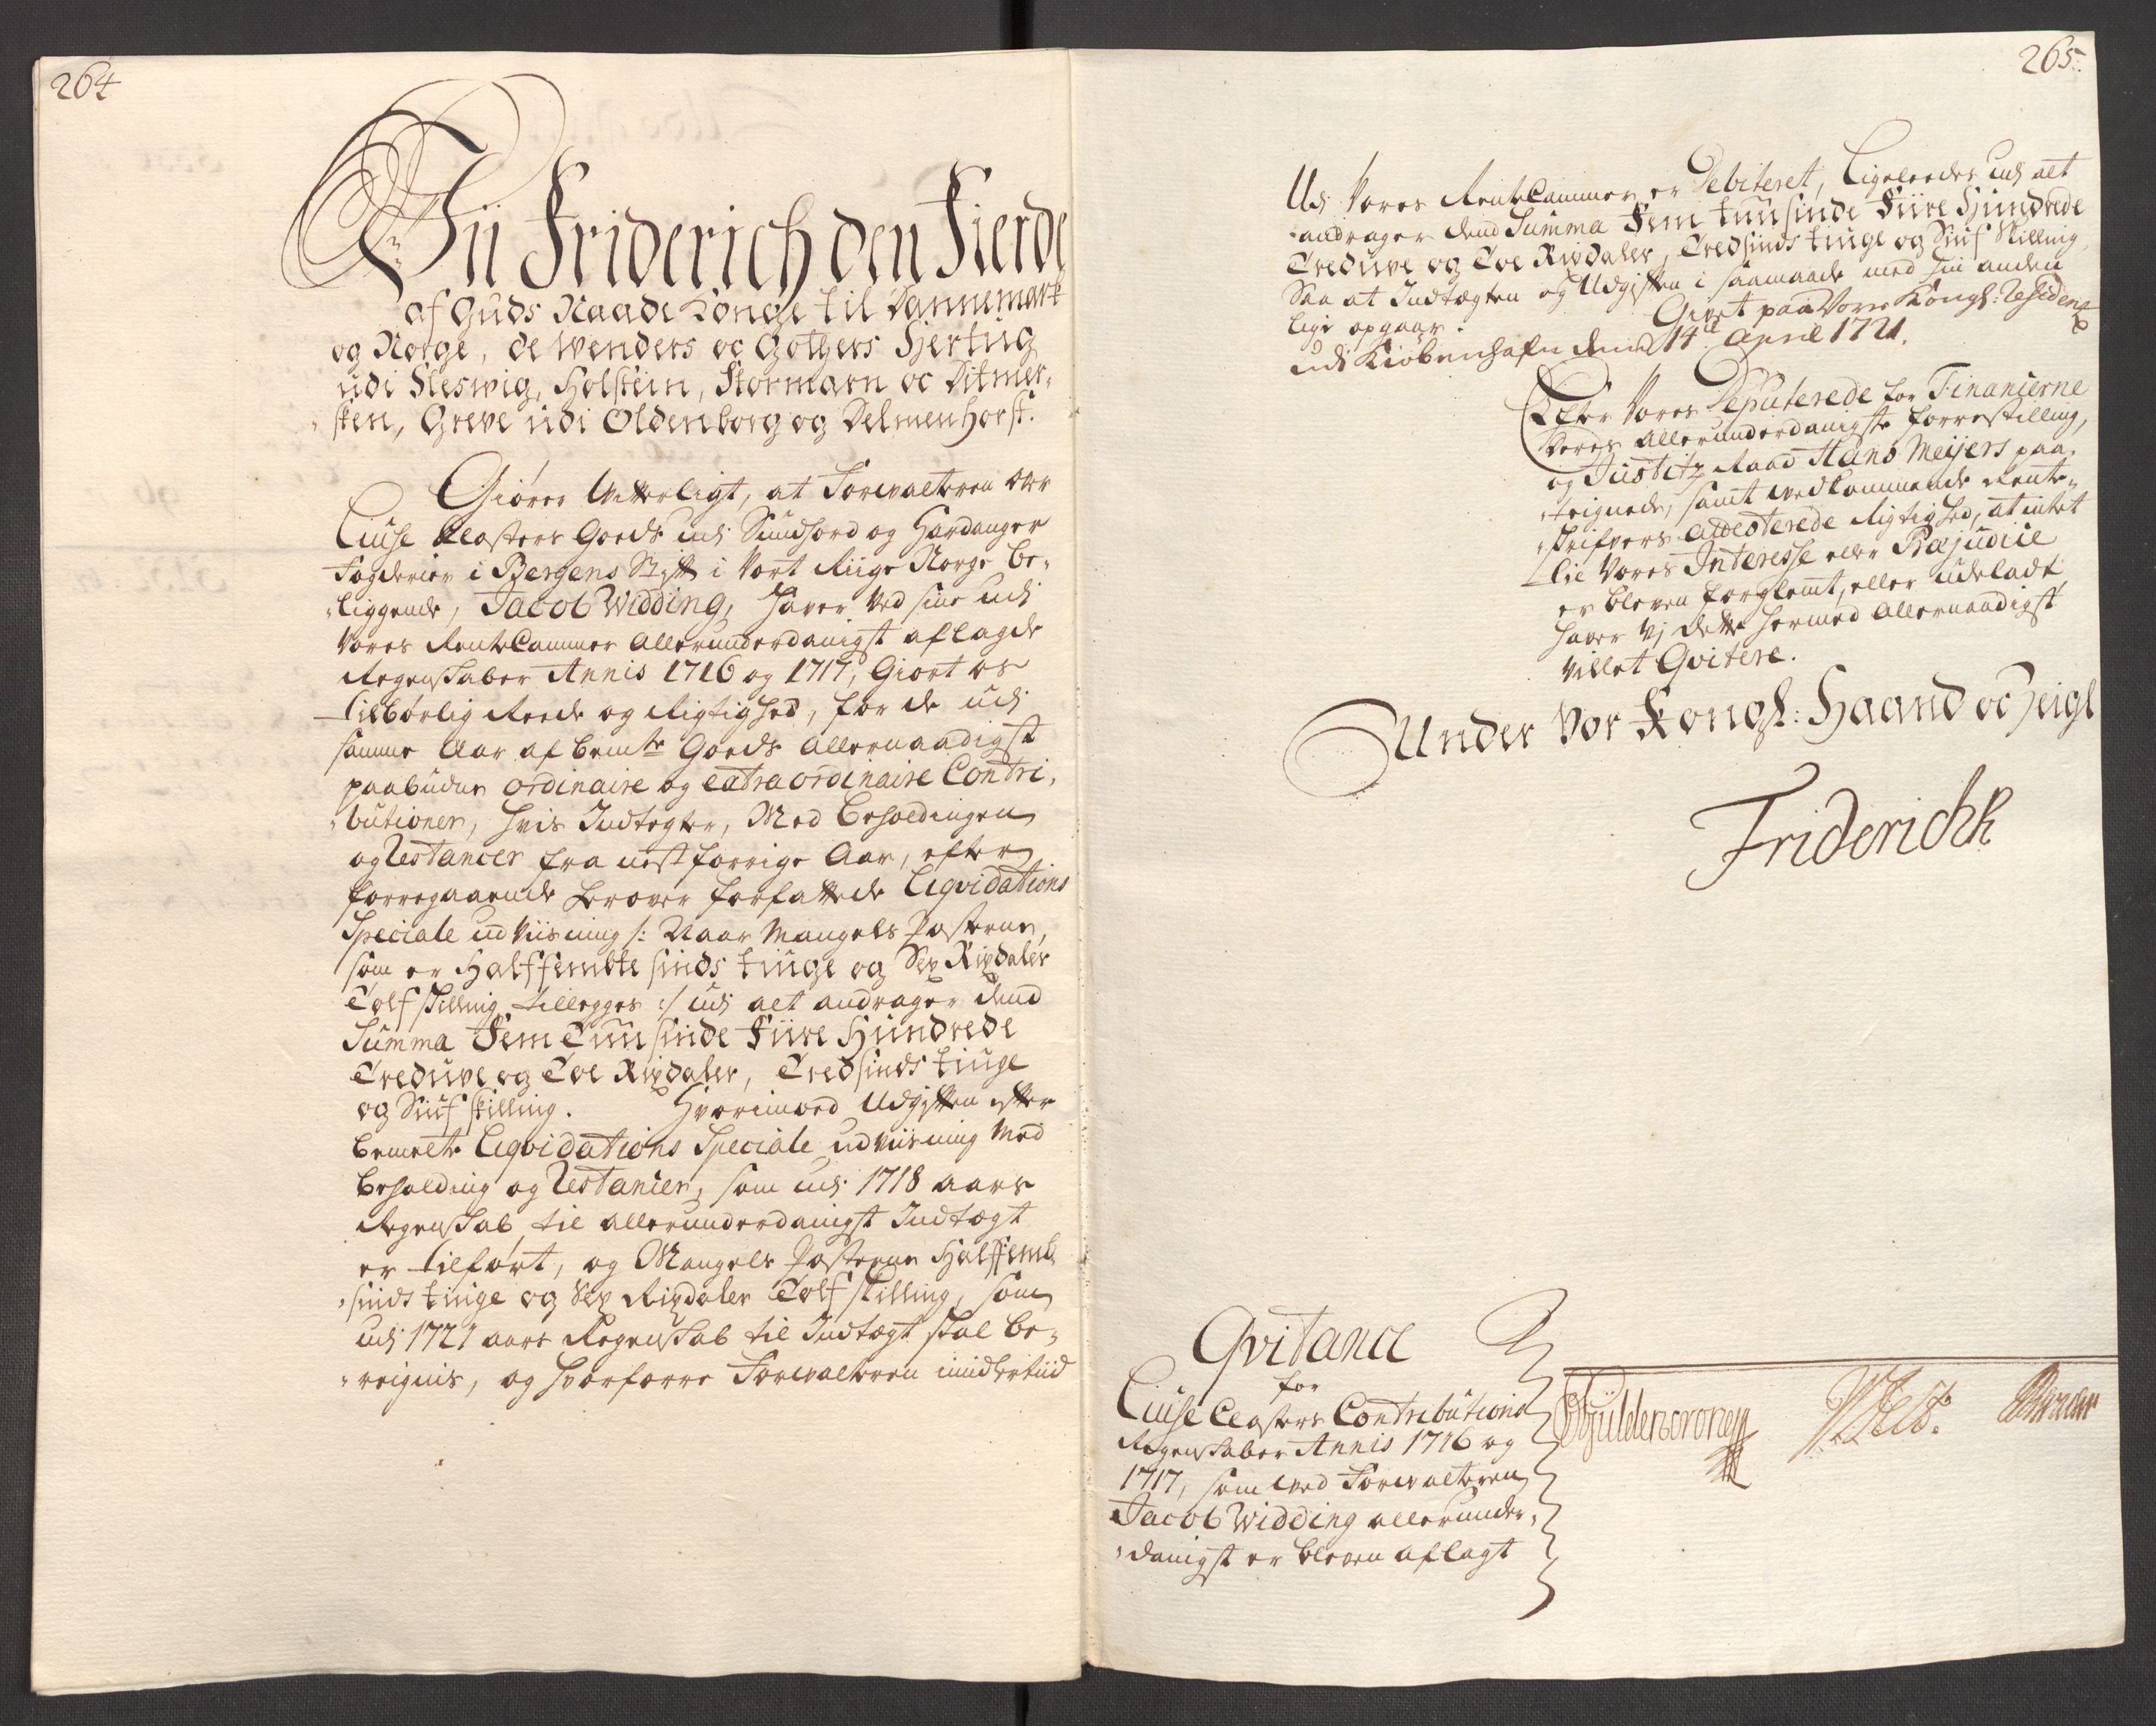 264
Wii Friderich den Fierde
af Guds Naade Konge til Dannemark
og Norge, de Wenders oc Gothers Hertug
udi Sleswig, Holstein, Stormarn oc Ditmer-
sken, Greve udi Oldenborg og Delmenhorst.
Giører Witterligt, at Forvalteren over
Liuse Closters Goeds udi Sundfiord og Hardanger
Fogderier i Bergens Stift i Vort Riige Norge be-
liggende, Jacob Widding, haver ved sine udi
Vores RenteCammer Allerunderdanigst aflagde
Regenskaber Annis 1716 og 1717, Giort os
tilbørlig Reede og Rigtighed, for de udi
samme Aar af bemte Goeds Allernaadigst
paabudne ordinaire og extraordinaire Contri-
butioner, hvis Indtegter, Med Beholdingen
og Restancer fra nest forrige Aar, efter
forregaaende herover forfattede Liqvidations
Speciale udviisning /: Naar Mangels Posterne,
som er Halffembte sinds tiuge og Sex Rixdaler
Tolf skilling tillegges :/ udi alt andrager dend
Summa Fem Tuusinde Fiire Hundrede
Treduve og Toe Rixdaler, Tredsinds tiuge
og Siuf skilling. Hvorimod Udgiften efter
bemelte Liqvidations Speciale udviisning Med
beholding og Restancer, som udi 1718 aars
Regenskab til allerunderdanigst Indtægt
er tilført, og Mangels Posterne Halffemte
sinds tiuge og Sex Rixdaler Tolf skilling, som
udi 1721 aars Regenskab til Indtægt skal be-
reignis, og hvorforre Forvalteren imidlertiid
265.
Udi Vores RenteCammer er Debiteret, Ligeleedes udi alt
andrager dend Summa Fem tuusinde Fiire Hundrede
Treduve og Toe Rixdaler, Tredsinds tiuge og Siuf Skilling,
Saa at Indtægten og Udgiften i saamaade med hin anden
lige opgaar. Givet paa Vores Kongl: Residentz
udi Kiøbenhafn dend 14de April 1721.
Efter Vores Deputerede for Financierne
Deres Allerunderdanigste forrestilling,
og Justitz Raad Hans Meijers paa-
teignede, samt vedkommende Rente-
skrifvers Attesterede Rigtighed, at intet
til Vores Interesse eller Præjudice
er bleven forglemt, eller udeladt,
haver Vj dette hermed Allernaadigst
villet Qvitere.
Under Vor Kongl: Haand oc Zeigl
Friderich R
Qvitance
for
Liuse Closters Contributions
Regenskaber Annis 1716 og
1717, som ved Forvalteren
Jacob Widding allerunder-
danigst er bleven aflagt
Gyldencrone